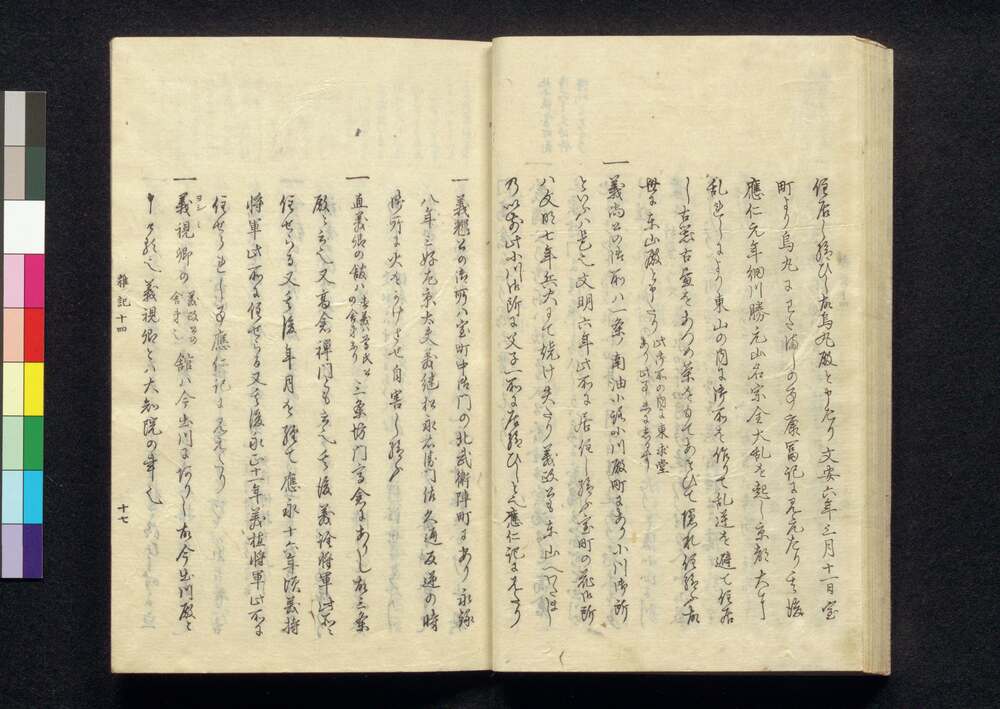 住居し給ひし故烏丸殿と申たり文安六年三月十一日室
町より烏丸にうつされし事康冨記に見えたり其後
應仁元年細川勝元山名宗全大乱を起し京都大に
乱れしにより東山の内に御所を作りて乱逆を避て住居
し古器古畫をあつめ茶をもてあそひて隠れ住給ふ故
世に東山殿と申たり此御所の内に東求堂
あり此事
一義尚公の御所ハ一条ノ南油小路小川殿町にあり小川御所
といふハ是也文明六年此所に居住し給ふ室町の花御所
ハ文明七年兵火にて焼け失たり義政公も東山へ
乃以前此小川御所に父子一所に居給ひしと也應仁記に見たり
一義輝公の御所ハ室町中御門の北武衛陣町にあり永録
八年三好左京大夫義継松永右衛門佐久通反逆の時
御所に火をかけさせ自害し給ふ
一直義卿の館ハ直義ハ尊氏公
の舎弟なり三条坊門高倉にありし故三条
殿と云也又高倉禅門とも云也其後義詮将軍此所に
住せらる又其後年月を経て應永十六年頃義持
将軍此所に住せらる又其後永正十二年義植将軍此所に
住せられし事應仁記に見えたり
一義視卿の義政公の
舎弟也館ハ今出川にありし故今出川殿と
ヨシミ
申ける也義視卿とハ大知院の事也
雜記十四
十七